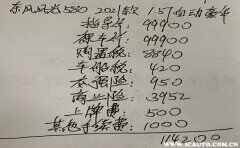 东风风光580 2021款 1.5T自动豪华
指导价: 99900
裸车价: 99900
购置税: 8840
车船税: 420
交强险: 950
商业险: 3952
上牌费: 500
其他手续费: 1000
114200
www.icauto.com.cn